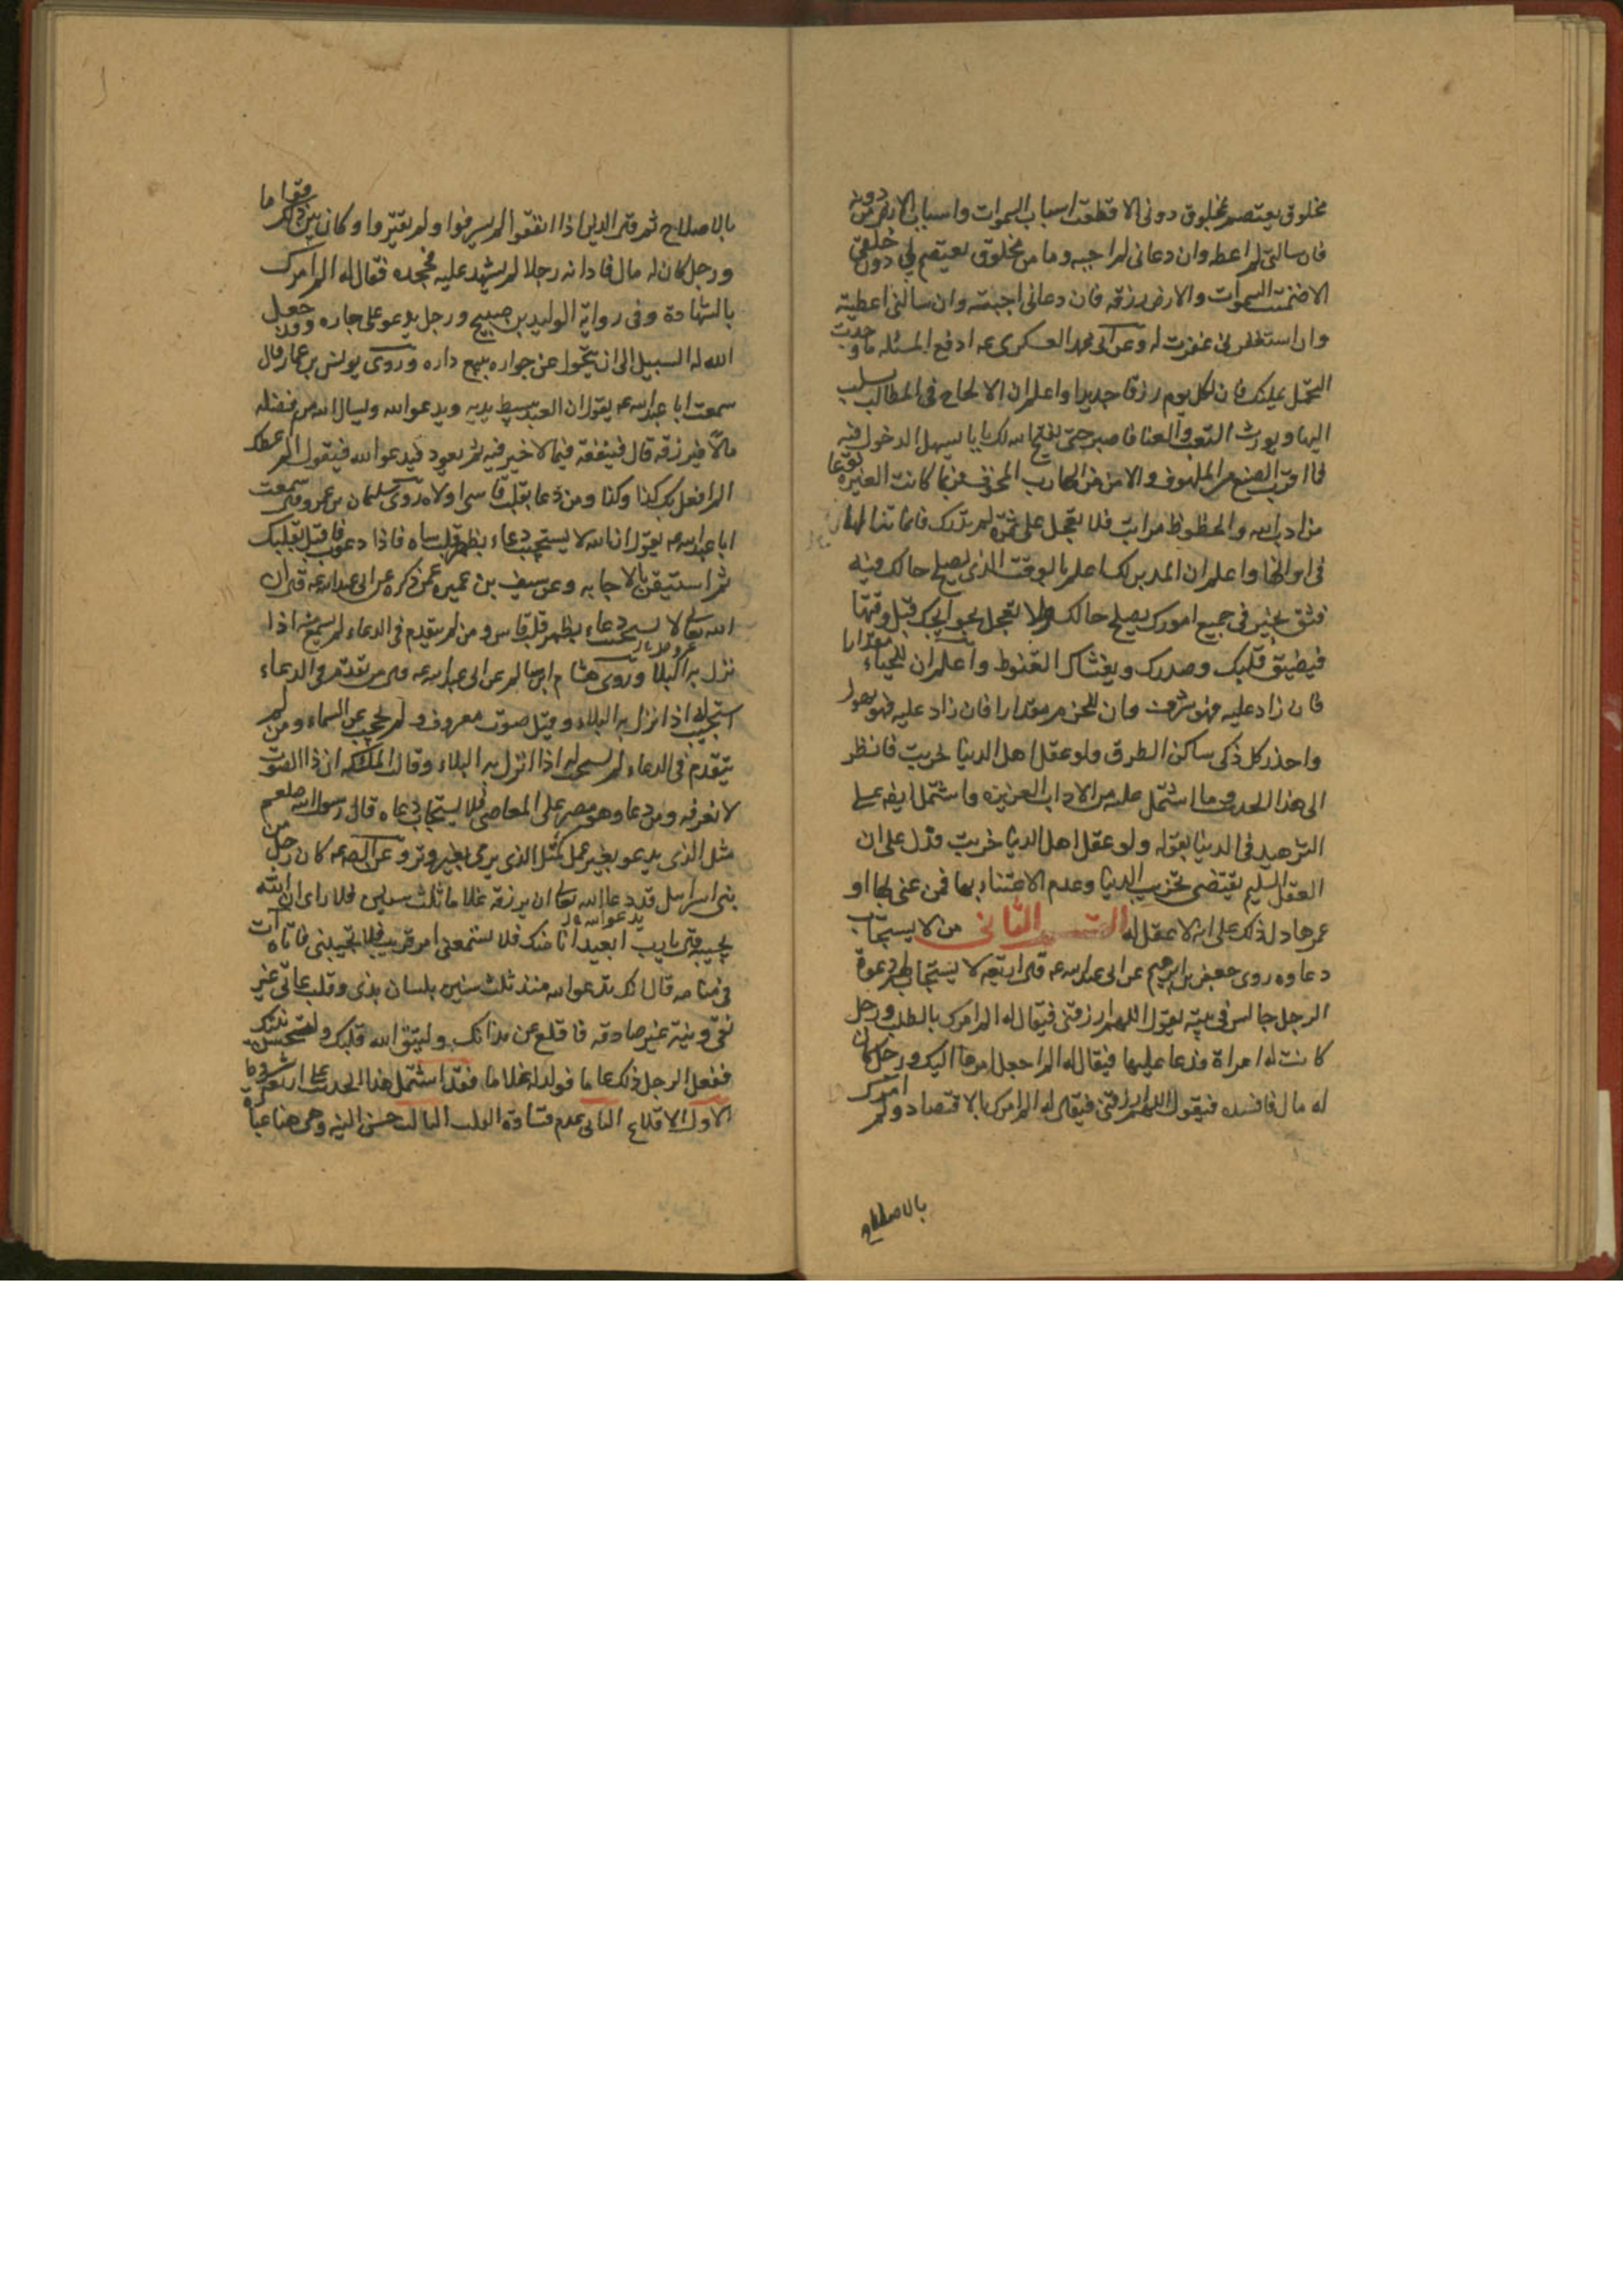 مخلوق يعتصم بمخلوق دونى الا قطعت اسباب السموات واسباب الارض من دونه
فان سالنى لم اعطه وان دعانى لم اجبه وما من مخلوق يعتصم بى دون خلقى
الا ضمنت السموات والارض رزقه فان دعانى اجبته وان سالنى اعطيته
وان استغفرنى غفرت له وعن ابى محمد العسكرى عه ادفع المسئله ما وجدت
التحمل يمكنك فان لكل يوم رزقا جديدا واعلم ان الالحاح فى المطالب يسلب
البهاء ويورث التعب والعنا فاصبر حتى يفتح الله لك بابا يسهل الدخول فيه
فما اقرب الصنع من الملهوف والامن من الهارب المخوف فربما كانت الغير نوعا
من ادب الله والحظوظ مراتب فلا تعجل على ثمرة لم تدرك فانما تنالها
فى اوانها واعلم ان المدبر لك اعلم بالوقت الذى يصلح حالك فيه
فثق بخيرته فى جميع امورك يصلح حالك ولا تعجل بحوائجك قبل وقتها
فيضيق قلبك وصدرك ويغشاك القنوط واعلم ان للحياء مقدارا
فان زاد عليه فهو سرف وان للحزم مقدارا فان زاد عليه فهو تهور
واحذر كل ذكى ساكن الطرف ولو عقل اهل الدنيا خربت فانظر
الى هذا الحديث وما اشتمل عليه من الاداب العزيزه واشتمل ايضا على
التزهيد فى الدنيا بقوله ولو عقل اهل الدنيا خربت فدل على ان
العقل السليم يقتضى تخريب الدنيا وعدم الاعتناء بها فمن عنى بها او
عمرها دل ذلك على انه لا عقل له القسم الثانى من لا يستجاب
دعاوه روى جعفر بن ابرهيم عن ابى عبد الله عه قال اربعة لا يستجاب لهم دعوة
الرجل جالس فى بيته يقول اللهم ارزقنى فيقال له الم امرك بالطلب ورجل
كانت له امراة فدعا عليها فيقال له الم اجعل امرها اليك ورجل كان
له مال فافسده فيقول اللهم ارزقنى فيقال له الم امرك بالاقتصاد ولم امرك
بالاصلاح
بالاصلاح ثم قال الذين اذا انفقوا لم يسرفوا ولم يقتروا وكان بين ذلك قواما
ورجل كان له مال فادانه رجلا لم يشهد عليه فجحده فقال له الم امرك
بالشهادة وفى رواية الوليد بن صبيح ورجل يدعو على جاره وقد جعل
الله له السبيل الى ان يتحول عن جواره ببيع داره وروى يونس بن عمار قال
سمعت ابا عبد الله عه يقول ان العبد يبسط يديه ويدعو الله ويسال الله من فضله
مالا فيرزقه قال فينفقه فيما لا خير فيه ثم يعود فيدعو الله فيقول الم اعطك
الم افعل بك كذا وكذا ومن دعا بقلب قاس او لاه روى سليمان بن عمرو قال سمعت
ابا عبد الله عه يقول ان الله لا يستجيب دعاء بظهر قلب ساه فاذا دعوت فاقبل بقلبك
ثم استيقن بالاجابه وعن سيف بن عميره عمن ذكره عن ابى عبد الله عه قال ان
الله تعالى لا يستجيب دعاء بظهر قلب قاس ومن لم يتقدم فى الدعاء لم يسمع منه اذا
نزل به البلا وروى هشام بن سالم عن ابى عبد الله عه قال من تقدم فى الدعاء
استجيب له اذا نزل به البلاء وقيل صوت معروف ولم يحجب عن السماء ومن لم
يتقدم فى الدعاء لم يستجب له اذا نزل به البلاء وقالت الملئكه ان ذا الصوت
لا نعرفه ومن دعا وهو مصر على المعاصى فلا يستجاب دعاه قال رسول الله صلعم
مثل الذى يدعو بغير عمل كمثل الذى يرمى بغير وتر وعن الص عه كان رجل من
بنى اسرائيل قد دعا الله تعالى ان يرزقه غلاما ثلث سنين فلما راى ان الله
يجيبه قال يا رب ابعيد انا منك فلا تسمعنى ام قريب فلا تجيبنى فاتاه آت
فى منامه قال انك تدعو الله منذ ثلث سنين بلسان بذى وقلب عاتى غير
نقى ونية غير صادقه فاقلع عن بذائك وليتق الله قلبك ولتحسن نيتك
ففعل الرجل ذلك عاما فولد له غلاما فقد اشتمل هذا الحديث على اربعة شروط
الاول الاقلاع الثانى عدم قساوة القلب الثالث حسن النيه وهى هنا عبارة